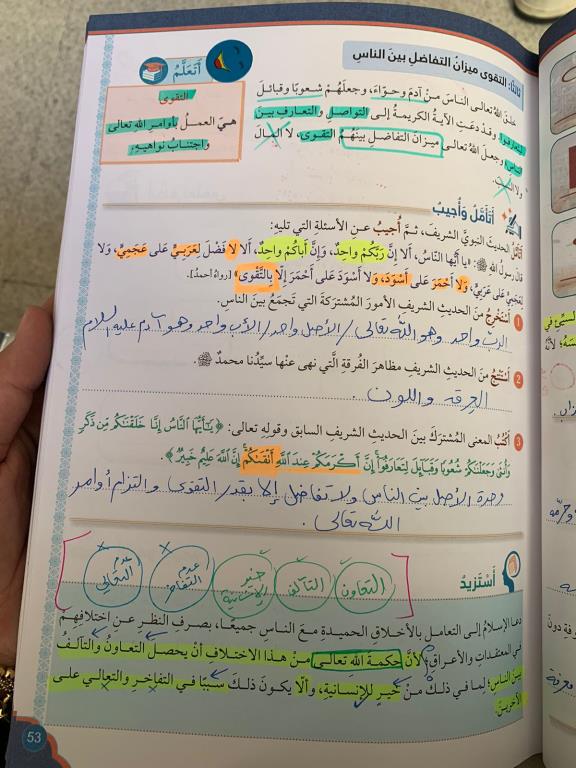 ثالثًا: التقوى ميزانُ التفاضلِ بينَ الناسِ
خلقَ اللهُ تعالى الناسَ منْ آدمَ وحوّاءَ، وجعلَهُمْ شعوبًا وقبائلَ
ليتعارفوا، وقدْ دعَتِ الآيةُ الكريمةُ إلى التواصلِ والتعارفِ بينَ
الناسِ، وجعلَ اللهُ تعالى ميزانَ التفاضلِ بينَهُمُ التقوى، لا المالَ
ولا النسبَ.
أَتَعَلَّمُ
التقوى
هيَ العملُ بأوامرِ اللهِ تعالى
واجتنابُ نواهيهِ.
أَتَأَمَّلُ وَأُجيبُ
أتأمَّلُ الحديثَ النبويَّ الشريفَ، ثمَّ أُجيبُ عنِ الأسئلةِ التي تليهِ:
قالَ رسولُ اللهِ ﷺ: «يا أيُّها النّاسُ، ألا إنَّ ربَّكُمْ واحِدٌ، وَإنَّ أباكُمْ واحِدٌ، ألا لا فَضْلَ لِعَرَبيٍّ على عَجَميٍّ، وَلا
لِعَجَميٍّ على عَرَبيٍّ، وَلا أحْمَرَ على أَسْوَدَ، وَلا أَسْوَدَ على أحْمَرَ إلّا بِالتَّقْوى» [رواهُ أحمدُ].
1 أَسْتَخْرِجُ منَ الحديثِ الشريفِ الأمورَ المُشترَكةَ التي تَجمَعُ بينَ الناسِ.
الرب واحد وهو الله تعالى / الأصل واحد / الأب واحد وهو آدم عليه السلام
2 أَسْتَنْتِجُ منَ الحديثِ الشريفِ مظاهرَ الفُرقةِ الَّتي نهى عنْها سيِّدُنا محمدٌ ﷺ.
العرق واللون .
3 أَكْتُبُ المعنى المُشترَكَ بينَ الحديثِ الشريفِ السابقِ وقولِهِ تعالى: ﴿يَٰٓأَيُّهَا ٱلنَّاسُ إِنَّا خَلَقۡنَٰكُم مِّن ذَكَرٖ
وَأُنثَىٰ وَجَعَلۡنَٰكُمۡ شُعُوبٗا وَقَبَآئِلَ لِتَعَارَفُوٓاْۚ إِنَّ أَكۡرَمَكُمۡ عِندَ ٱللَّهِ أَتۡقَىٰكُمۡۚ إِنَّ ٱللَّهَ عَلِيمٌ خَبِيرٞ﴾
وحدة الأصل بين الناس ولا تفاضل إلا بقدر التقوى والتزام أوامر
الله تعالى .
أَسْتَزيدُ
التعاون
التآلف
خير للإنسانية
عدم التفاخر
عدم التعالي
دعا الإسلامُ إلى التعاملِ بالأخلاقِ الحميدةِ معَ الناسِ جميعًا، بصرفِ النظرِ عنِ اختلافِهِمْ
في المعتقداتِ والأعراقِ؛ لأنَّ حكمةَ اللهِ تعالى منْ هذا الاختلافِ أنْ يحصلَ التعاونُ والتآلفُ
بينَ الناسِ؛ لِما في ذلكَ منْ خيرٍ للإنسانيةِ، وألّا يكونَ ذلكَ سببًا في التفاخرِ والتعالي على
الآخرينَ.
53